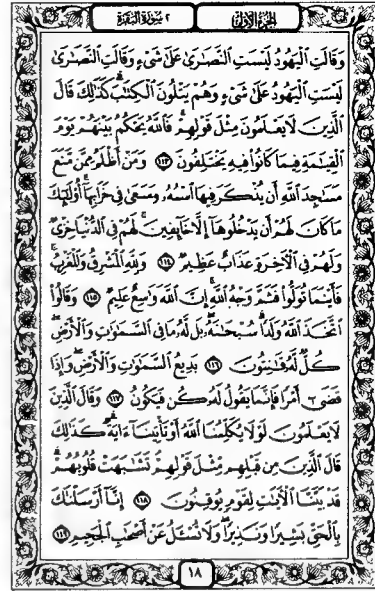 الجزء الأول
٢ سورة البقرة
وَقَالَتِ ٱلْيَهُودُ لَيْسَتِ ٱلنَّصَٰرَىٰ عَلَىٰ شَىْءٍ وَقَالَتِ ٱلنَّصَٰرَىٰ
لَيْسَتِ ٱلْيَهُودُ عَلَىٰ شَىْءٍ وَهُمْ يَتْلُونَ ٱلْكِتَٰبَ ۗ كَذَٰلِكَ قَالَ
ٱلَّذِينَ لَا يَعْلَمُونَ مِثْلَ قَوْلِهِمْ ۚ فَٱللَّهُ يَحْكُمُ بَيْنَهُمْ يَوْمَ
ٱلْقِيَٰمَةِ فِيمَا كَانُوا۟ فِيهِ يَخْتَلِفُونَ ١١٣ وَمَنْ أَظْلَمُ مِمَّن مَّنَعَ
مَسَٰجِدَ ٱللَّهِ أَن يُذْكَرَ فِيهَا ٱسْمُهُۥ وَسَعَىٰ فِى خَرَابِهَآ ۚ أُو۟لَٰٓئِكَ
مَا كَانَ لَهُمْ أَن يَدْخُلُوهَآ إِلَّا خَآئِفِينَ ۚ لَهُمْ فِى ٱلدُّنْيَا خِزْىٌ
وَلَهُمْ فِى ٱلْءَاخِرَةِ عَذَابٌ عَظِيمٌ ١١٤ وَلِلَّهِ ٱلْمَشْرِقُ وَٱلْمَغْرِبُ ۚ
فَأَيْنَمَا تُوَلُّوا۟ فَثَمَّ وَجْهُ ٱللَّهِ ۚ إِنَّ ٱللَّهَ وَٰسِعٌ عَلِيمٌ ١١٥ وَقَالُوا۟
ٱتَّخَذَ ٱللَّهُ وَلَدًا ۗ سُبْحَٰنَهُۥ ۖ بَل لَّهُۥ مَا فِى ٱلسَّمَٰوَٰتِ وَٱلْأَرْضِ ۖ
كُلٌّ لَّهُۥ قَٰنِتُونَ ١١٦ بَدِيعُ ٱلسَّمَٰوَٰتِ وَٱلْأَرْضِ ۖ وَإِذَا
قَضَىٰٓ أَمْرًا فَإِنَّمَا يَقُولُ لَهُۥ كُن فَيَكُونُ ١١٧ وَقَالَ ٱلَّذِينَ
لَا يَعْلَمُونَ لَوْلَا يُكَلِّمُنَا ٱللَّهُ أَوْ تَأْتِينَآ ءَايَةٌ ۗ كَذَٰلِكَ
قَالَ ٱلَّذِينَ مِن قَبْلِهِم مِّثْلَ قَوْلِهِمْ ۘ تَشَٰبَهَتْ قُلُوبُهُمْ ۗ
قَدْ بَيَّنَّا ٱلْءَايَٰتِ لِقَوْمٍ يُوقِنُونَ ١١٨ إِنَّآ أَرْسَلْنَٰكَ
بِٱلْحَقِّ بَشِيرًا وَنَذِيرًا ۖ وَلَا تُسْـَٔلُ عَنْ أَصْحَٰبِ ٱلْجَحِيمِ ١١٩
١٨